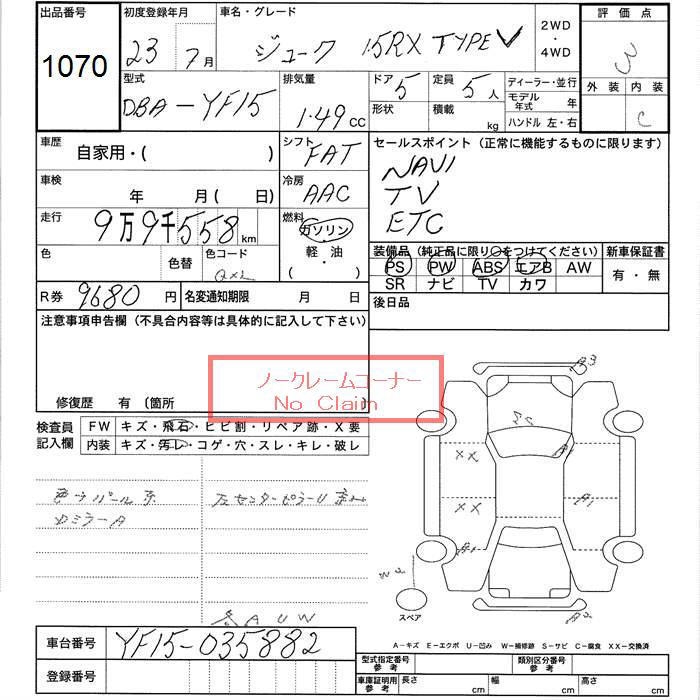 出品番号 初度登録年月 車名・グレード 2WD ・ 4WD 評価点
1070 23 7月 ジューク 1.5RX TYPE V 3
型式 排気量 ドア 5 定員 5人 ディーラー・並行 外装 内装
DBA-YF15 1.49cc 形状 積載 kg モデル年式 年 C
ハンドル 左・右
車歴 自家用・( ) シフト FAT セールスポイント (正常に機能するものに限ります)
車検 年 月( 日) 冷房 AAC NAVI
TV
ETC
走行 9万9千558km 燃料 ガソリン・軽油・( )
色 色替 色コード
装備品 (純正品に限り○をつけてください) 新車保証書
PS PW ABS エアB AW 有・無
SR ナビ TV カワ
R券 9680円 名変通知期限 月 日 後日品
注意事項申告欄 (不具合内容等は具体的に記入して下さい)
ノークレームコーナー
No Claim
修復歴 有 〔箇所
検査員記入欄 FW キズ・飛石・ヒビ割・リペア跡・X要
内装 キズ・汚レ・コゲ・穴・スレ・キレ・破レ
A3
XX
XX A1
A1
スペア
A U W
車台番号 YF15-035882
登録番号
A-キズ E-エクボ U-凹み W-補修跡 S-サビ C-腐食 XX-交換済
型式指定番号 参考 類別区分番号 参考
車庫証明用 参考 長さ cm 幅 cm 高さ cm